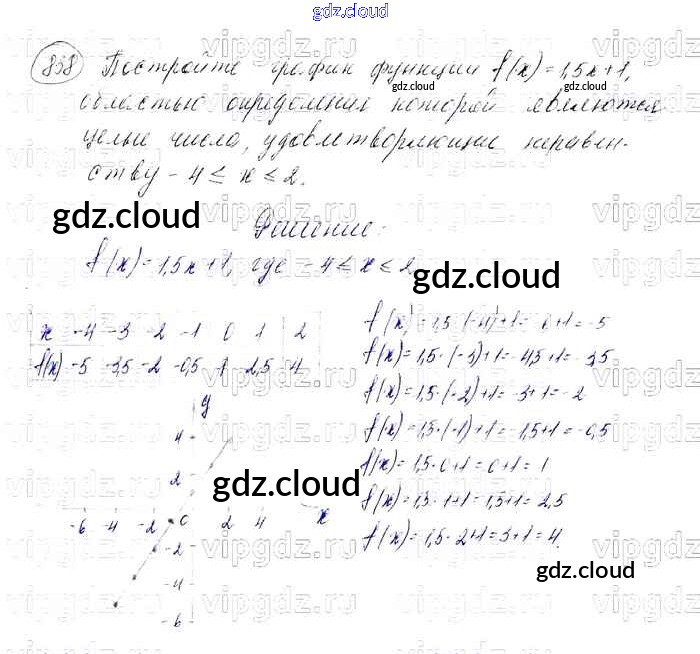 gdz.cloud
858 Постройте график функции f(x)=1,5x+1,
gdz.cloud gdz.cloud
областью определения которой являются
целые числа, удовлетворяющие неравен-
ству -4 ≤ x ≤ 2.
gdz.cloud
Решение:
f(x)=1,5x+1, где -4 ≤ x ≤ 2
gdz.cloud
x -4 -3 -2 -1 0 1 2
f(x) -5 -3,5 -2 -0,5 1 2,5 4
f(x)=1,5·(-4)+1=-6+1=-5
f(x)=1,5·(-3)+1=-4,5+1=-3,5
f(x)=1,5·(-2)+1=-3+1=-2
f(x)=1,5·(-1)+1=-1,5+1=-0,5
f(x)=1,5·0+1=0+1=1
f(x)=1,5·1+1=1,5+1=2,5
f(x)=1,5·2+1=3+1=4.
y
4
2
gdz.cloud
-6 -4 -2 0 2 4 x
-2
-4
-6
gdz.cloud
gdz.cloud
vipgdz.ru